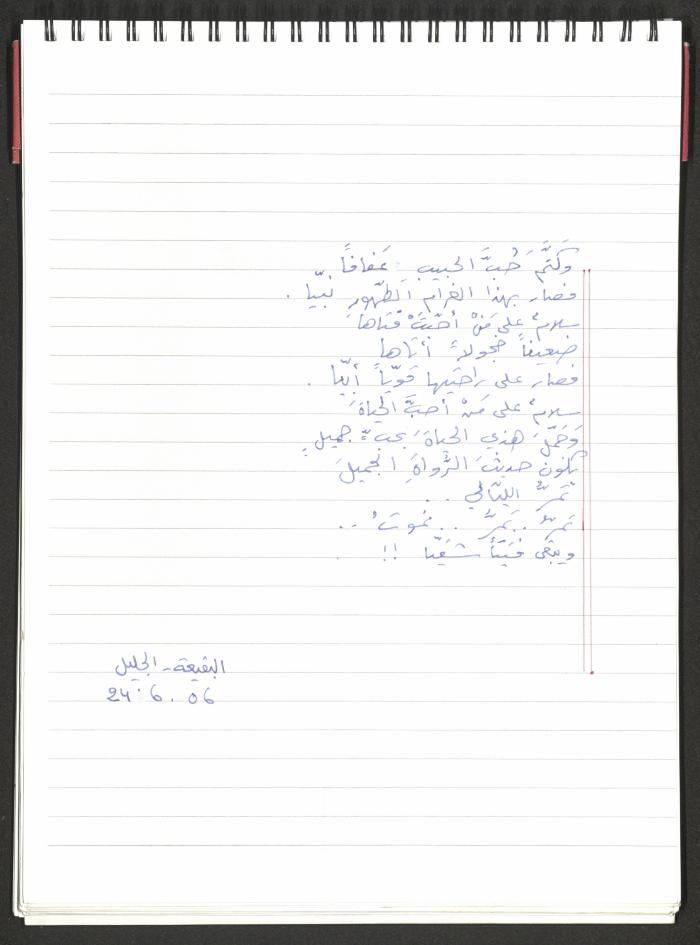 وَكَتَّمَ حُبَّ الحبيب عَفافاً
فصار بهذا الغرام الطّهور نبيّا .
سلامٌ على مَنْ أحبَّتْ فتاها
ضعيفاً خجولاً أتاها
فصار على راحتيها قويّاً أبيّا .
سلامٌ على مَنْ أحبَّ الحياةَ
وَجَمَّلَ هذي الحياةَ بحبٍّ جميلٍ
يكون حديثَ الرُّواةِ الجميلَ
تمرُّ الليالي . .
تمرُّ .. تمرُّ .. نموتُ ..
ويبقى فتيّاً شقيّا !!
البقيعة - الجليل
24.6.06